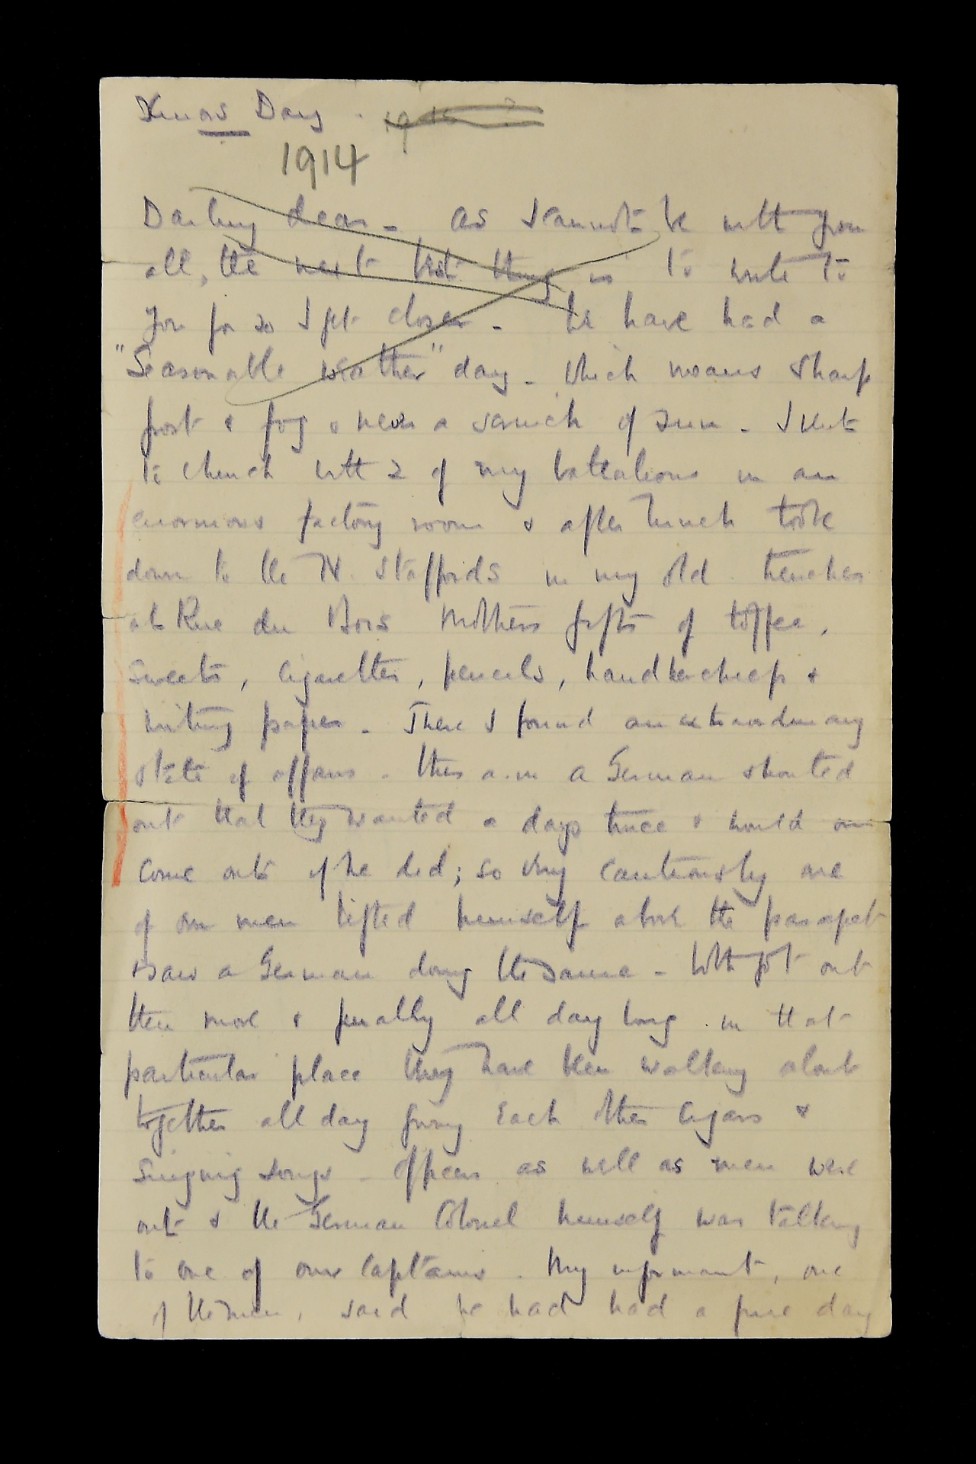 Xmas Day. 1915?
1914
Darling dear - As I cannot be with you
all, the next best thing is to write to
you for so I get closer - We have had a
"Seasonable weather" day - which means sharp
frost & fog & never a vestige of sun - I went
to church with 2 of my battalions in an
enormous factory room & after lunch took
down to the N. Staffords in my old trenches
at Rue du Bois Mothers gifts of toffee,
sweets, cigarettes, pencils, handkerchiefs &
writing paper - There I found an extraordinary
state of affairs - this a.m. a German shouted
out that they wanted a days truce & would one
come out if he did; so very cautiously one
of our men lifted himself above the parapet
& saw a German doing the same - Both got out
then more & finally all day long in that
particular place they have been walking about
together all day giving each other cigars &
singing songs - Officers as well as men were
out & the German Colonel himself was talking
to one of our Captains. My informant, one
of the men, said he had had a fine day